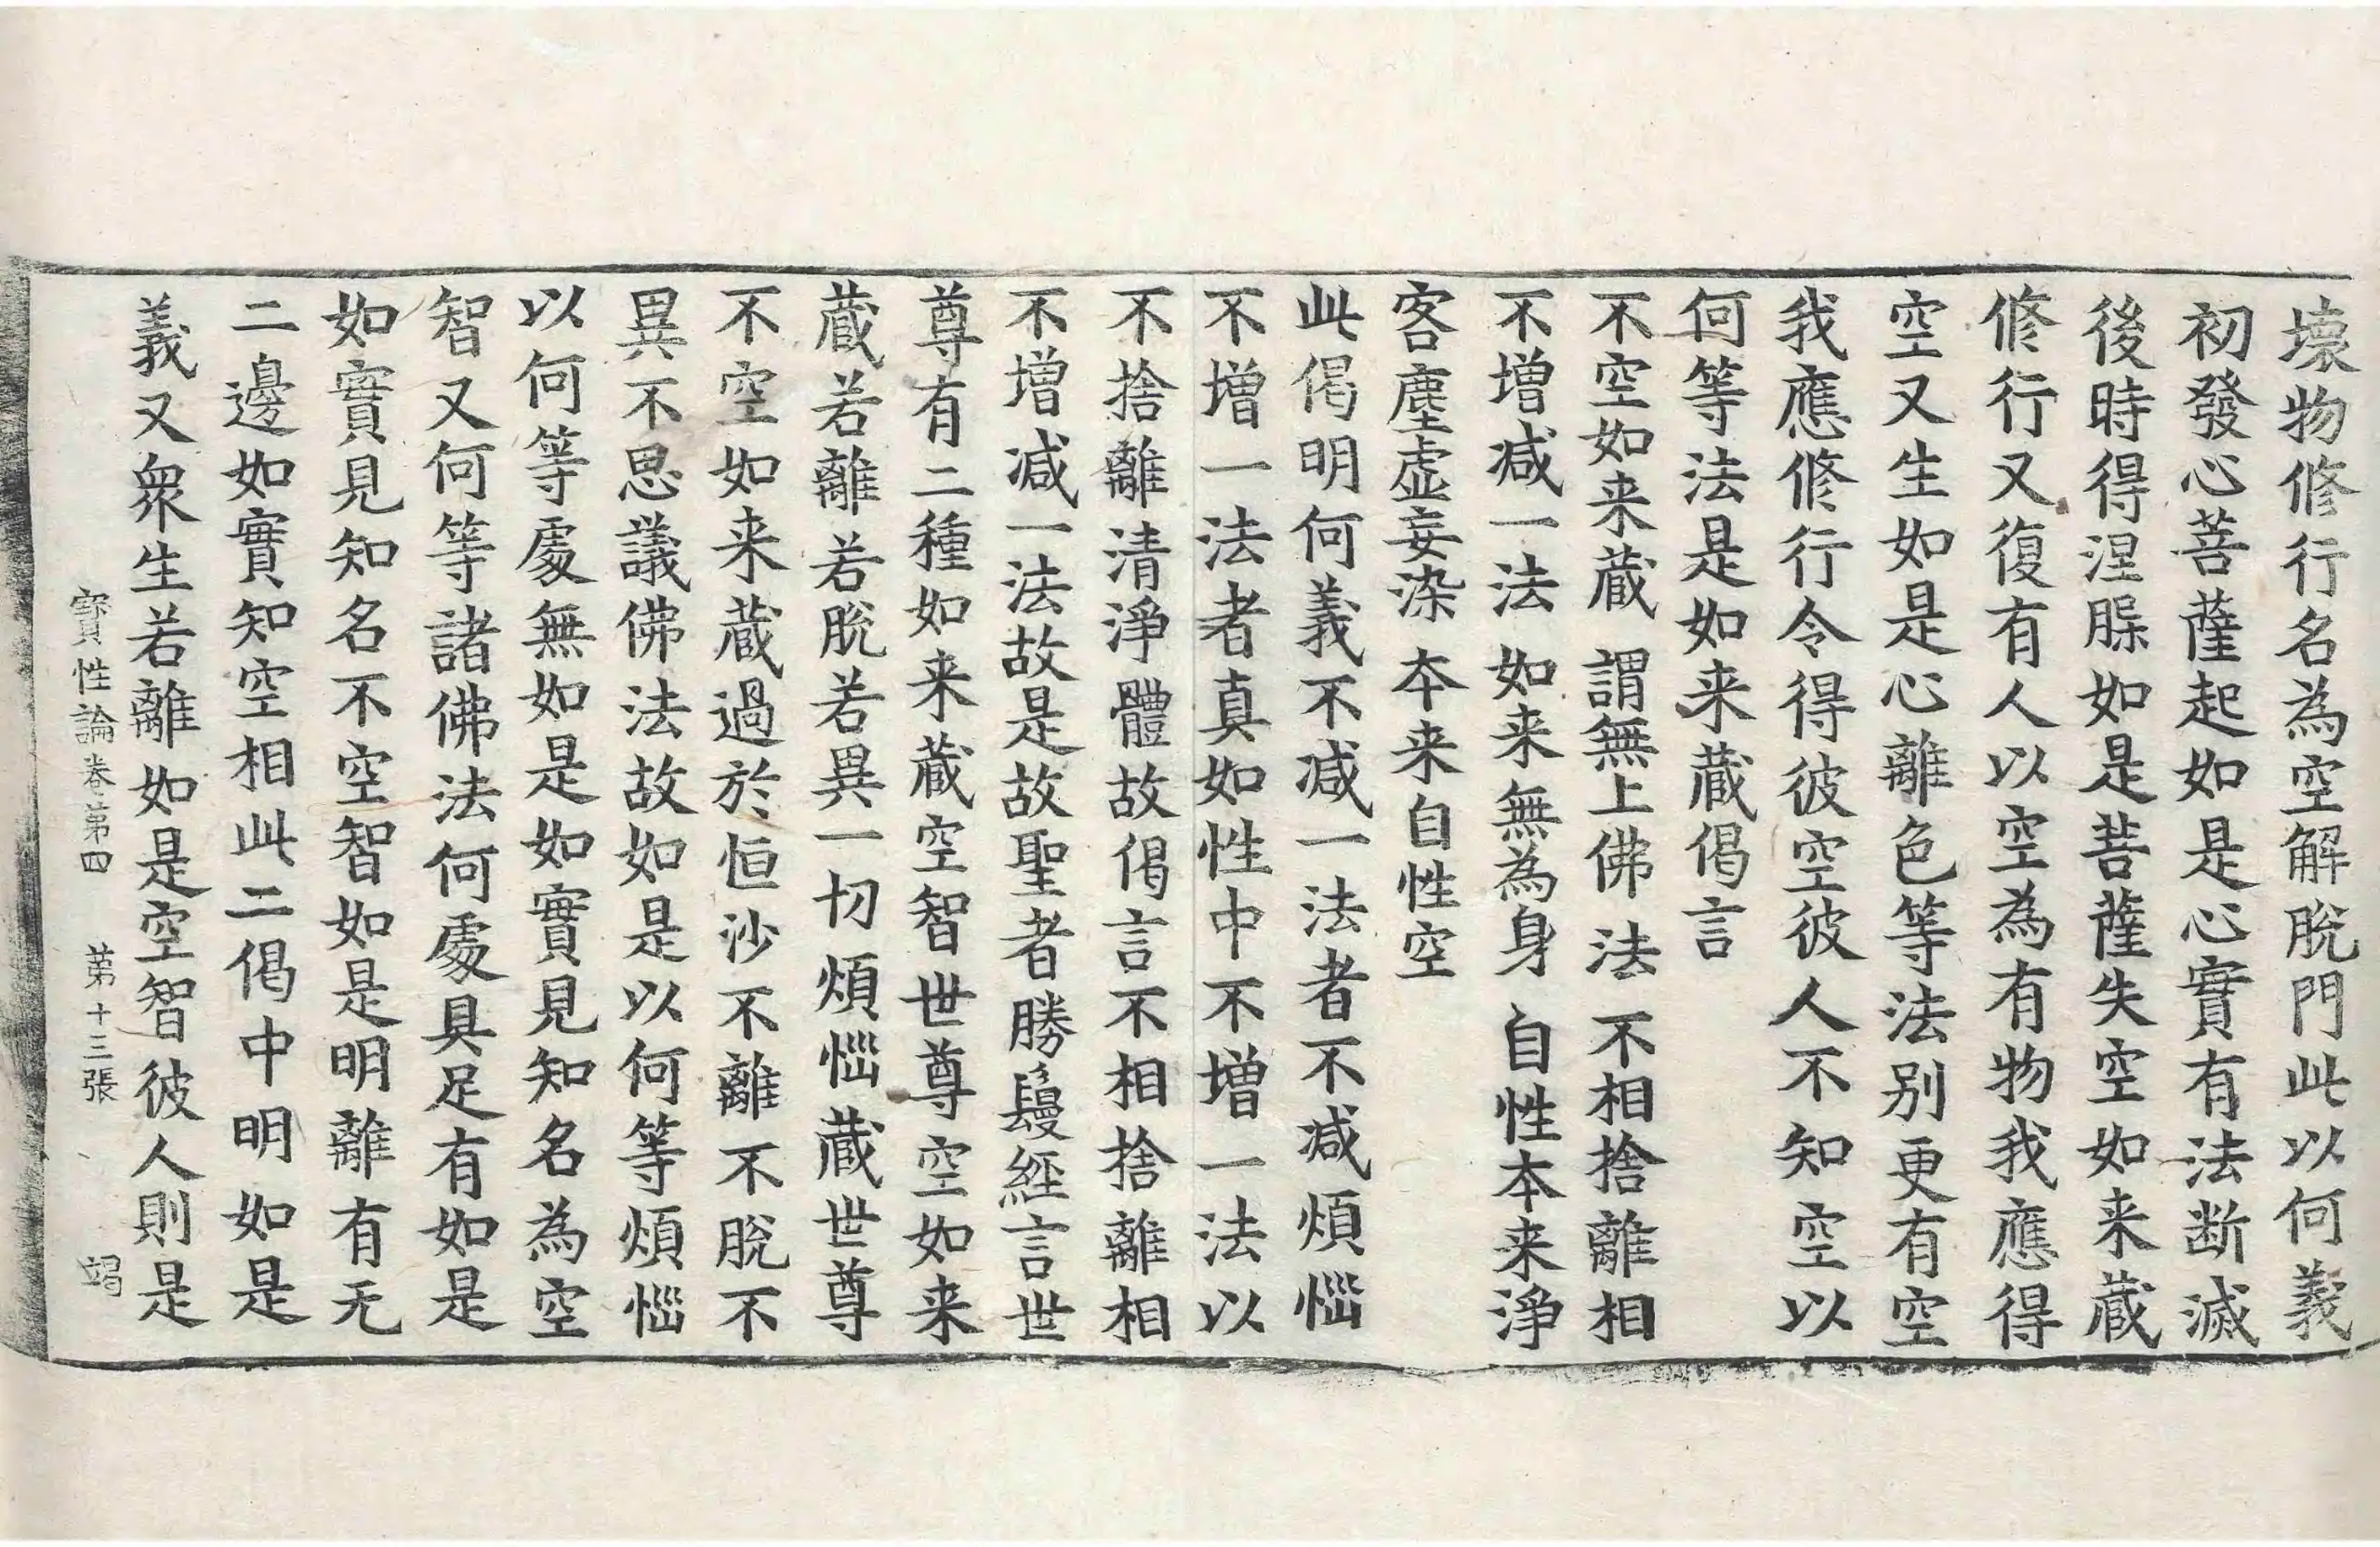 壞物修行名為空解脫門此以何義
初發心菩薩起如是心實有法断滅
後時得涅槃如是菩薩失空如来藏
修行又復有人以空為有物我應得
空又生如是心離色等法别更有空
我應修行令得彼空彼人不知空以
何等法是如来藏偈言
不空如来藏　謂無上佛法　不相捨離相
不增减一法　如来無為身　自性本来淨
客塵虛妄染　本来自性空
此偈明何義不减一法者不减煩惱
不增一法者真如性中不增一法以
不捨離清淨體故偈言不相捨離相
不增减一法故是故聖者勝鬘經言世
尊有二種如来藏空智世尊空如来
藏若離若脫若異一切煩惱藏世尊
不空如来藏過於恒沙不離不脫不
異不思議佛法故如是以何等煩惱
以何等處無如是如實見知名為空
智又何等諸佛法何處具足有如是
如實見知名不空智如是明離有无
二邊如實知空相此二偈中明如是
義又衆生若離如是空智彼人則是
寶性論卷第四　第十三張　竭